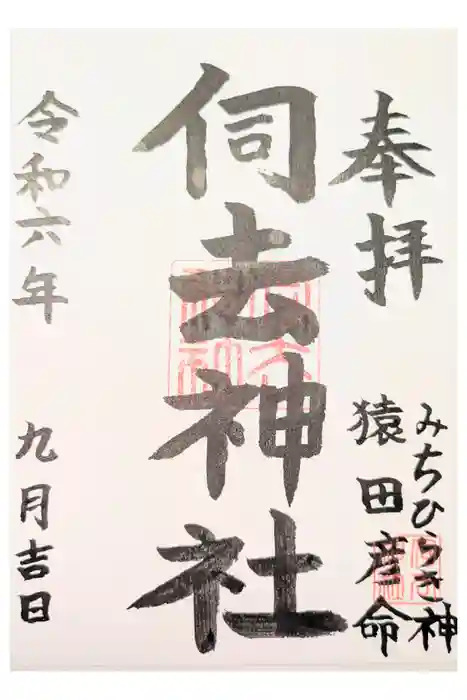 奉拝
みちひらき神
猿田彦命
伺去神社
令和六年 九月吉日